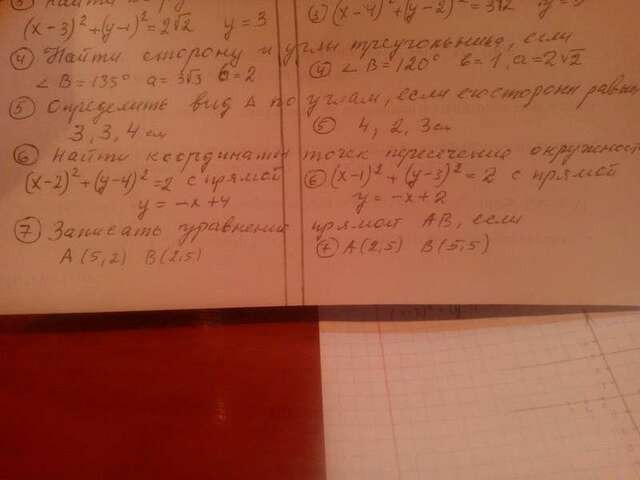 ③ Найти
(x-3)² + (y-1)² = 2√2 y = 3
③ (x-4)² + (y-2)² = 3√2
④ Найти сторону и углы треугольника, если
∠B = 135° a = 3√3 = 2
④ ∠B = 120° b = 1, a = 2√2
⑤ Определить вид Δ по углам, если его стороны равны
3, 3, 4 см
⑤ 4, 2, 3 см
⑥ Найти координаты точек пересечения окружност
(x-2)² + (y-4)² = 2 с прямой
y = -x + 4
⑥ (x-1)² + (y-3)² = 2 с прямой
y = -x + 2
⑦ Записать уравнение прямой AB, если
A (5, 2) B (2, 5)
⑦ A (2, 5) B (5, 5)